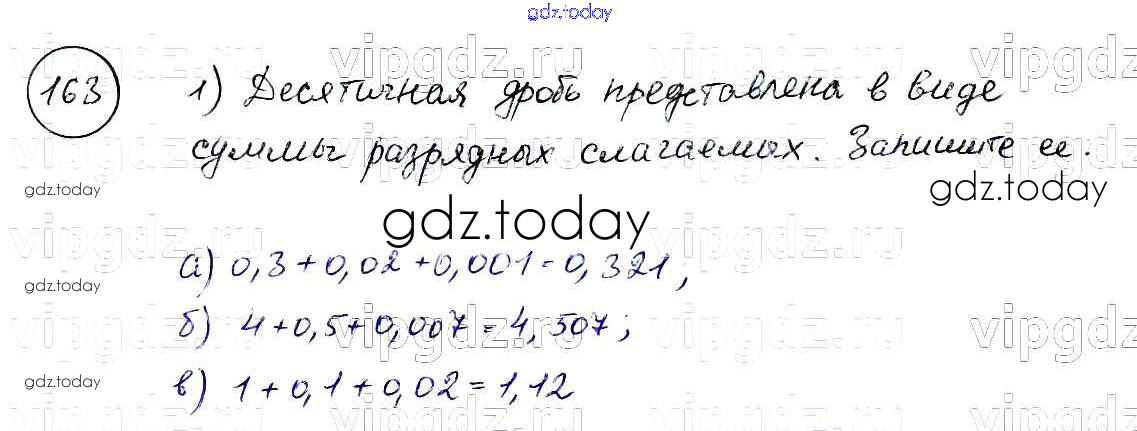 gdz.today
vipgdz.ru vipgdz.ru vipgdz
163 1) Десятичная дробь представлена в виде
суммы разрядных слагаемых. Запишите ее.
gdz.today gdz.today
gdz.today
vipgdz.ru vipgdz.ru vipgdz
а) 0,3+0,02+0,001=0,321;
gdz.today
б) 4+0,5+0,007=4,507;
vipgdz.ru vipgdz.ru vipgdz
gdz.today
в) 1+0,1+0,02=1,12
vipgdz.ru vipgdz.ru vipgdz